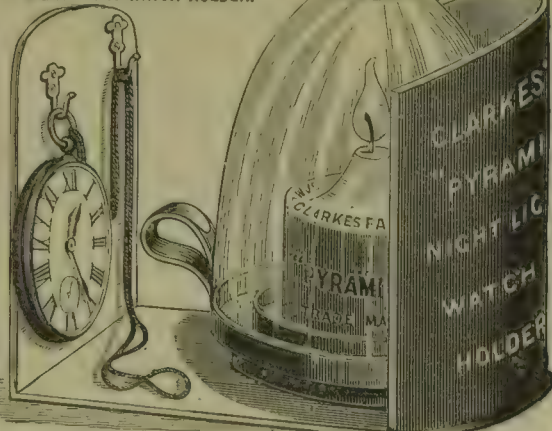 CLARKES'
"PYRAMI
NIGHT LIG
WATCH
HOLDER
CLARKES FA
"PYRAMI
TRADE MA